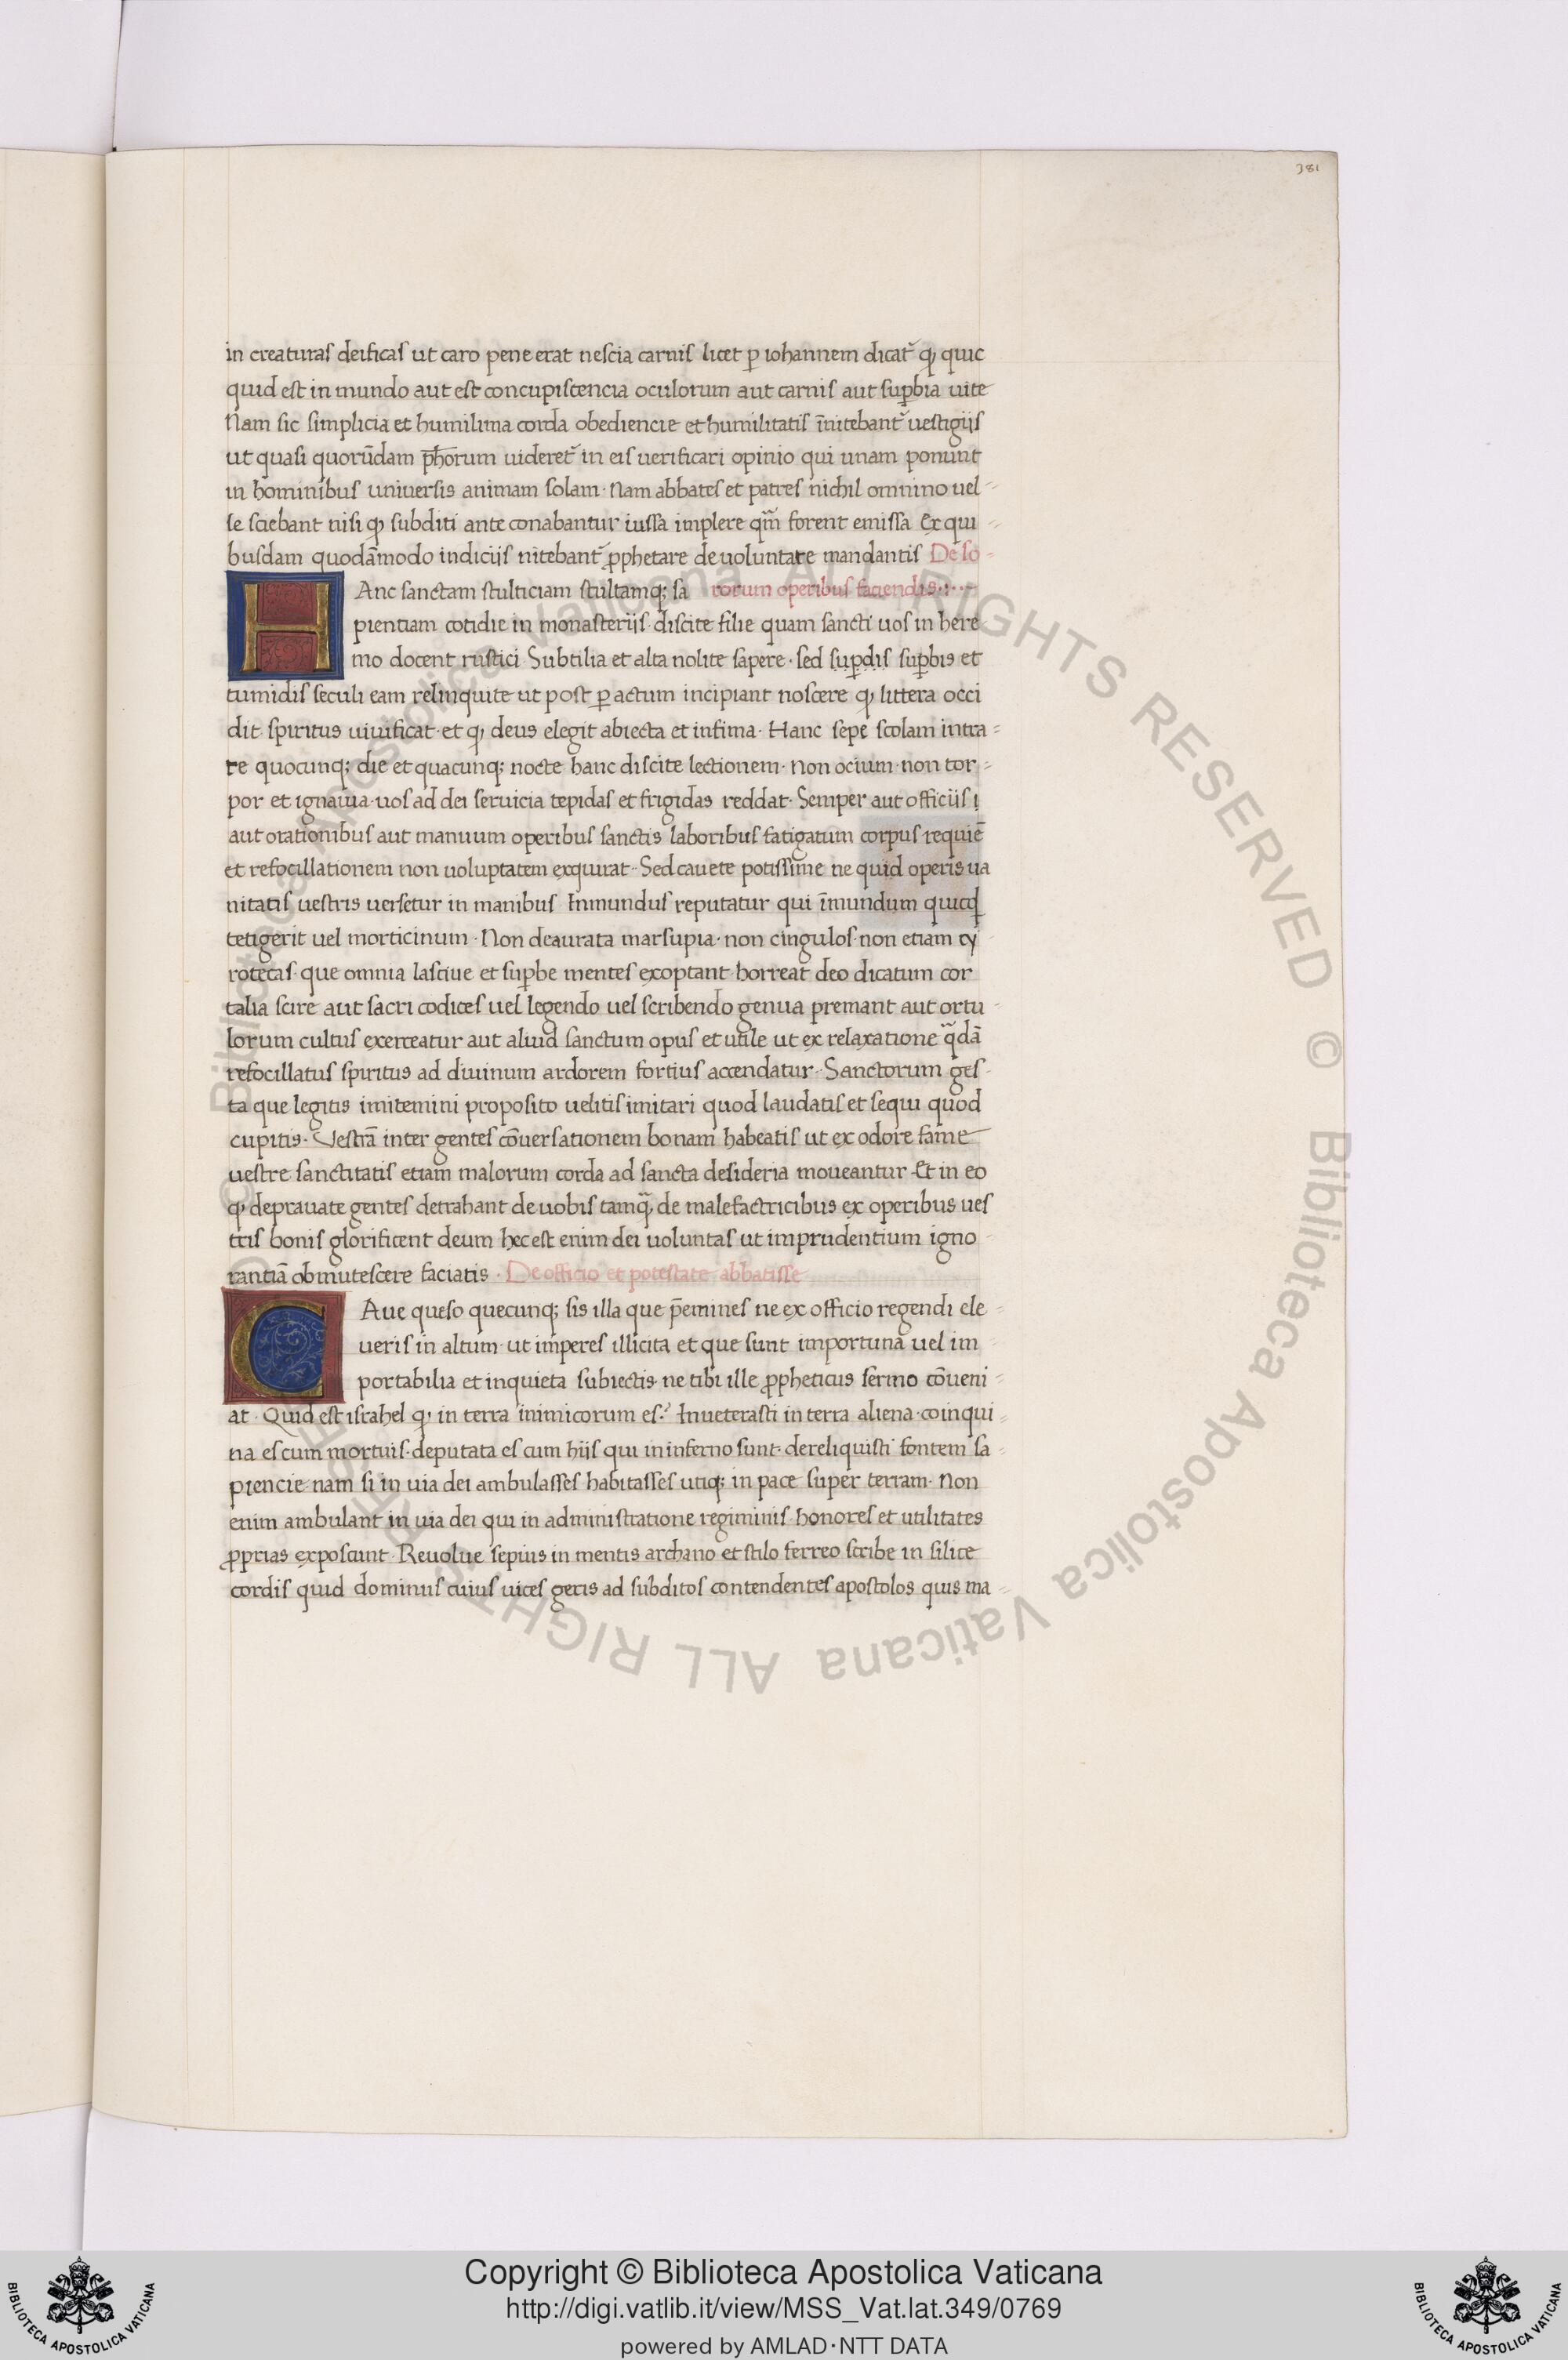 381
in creaturas deificas ut caro pene erat nescia carnis licet ꝑ iohannem dicat᷑ ꝙ quic
quid est in mundo aut est concupiscencia oculorum aut carnis aut suꝑbia uite
Nam sic simplicia et humilima corda obediencie et humilitatis īnitebant᷑ uestigijs
ut quasi quorūdam ph̄orum uideret᷑ in eis uerificari opinio qui unam ponunt
in hominibus universis animam solam · Nam abbates et patres nichil omnino uel
se sciebant nisi ꝙ subditi ante conabantur iussa implere qm̄ forent emissa Ex qui
busdam quodāmodo indicijs nitebant᷑ ꝓphetare de uoluntate mandantis De so
HAnc sanctam stulticiam stultamq; sa rorum operibus faciendis
pientiam cotidie in monasterijs discite filie quam sancti uos in here
mo docent rustici Subtilia et alta nolite sapere · sed suꝑdis suꝑbis et
tumidis seculi eam relinquite ut post ꝑactum incipiant noscere ꝙ littera occi
dit spiritus uiuificat · et ꝙ deus elegit abiecta et infima · Hanc sepe scolam intra
re quocunq; die et quacunq; nocte hanc discite lectionem · non ocium · non tor
por et ignauia · uos ad dei seruicia tepidas et frigidas reddat · Semper aut officijs
aut orationibus aut manuum operibus sanctis laboribus fatigatum corpus requiē
et refocillationem non uoluptatem exquirat · Sed cauete potissime ne quid operis ua
nitatis uestris uersetur in manibus · Inmundus reputatur qui īmundum quicq̄
tetigerit uel morticinum · Non deaurata marsupia · non cingulos · non etiam cy
rotecas · que omnia lasciue et suꝑbe mentes exoptant · horreat deo dicatum cor
talia scire aut sacri codices uel legendo uel scribendo genua premant aut ortu
lorum cultus exerceatur aut aliud sanctum opus et utile ut ex relaxatione q̄dā
refocillatus spiritus ad diuinum ardorem fortius accendatur · Sanctorum ges
ta que legitis imitemini proposito uelitis imitari quod laudatis et sequi quod
cupitis · Vestrā inter gentes cōuersationem bonam habeatis ut ex odore fame
uestre sanctitatis etiam malorum corda ad sancta desideria moueantur · Et in eo
ꝙ deprauate gentes detrahant de uobis tamq̄ de malefactricibus ex operibus ues
tris bonis glorificent deum hec est enim dei uoluntas ut imprudentium igno
rantiā obmutescere faciatis · De officio et potestate abbatisse
CAue queso quecunq; sis illa que p̄emines ne ex officio regendi ele
ueris in altum · ut imperes illicita et que sunt importuna uel im
portabilia et inquieta subiectis · ne tibi ille ꝓpheticus sermo cōueni
at · Quid est israhel ꝙ in terra inimicorum es? Inueterasti in terra aliena · coinqui
na es cum mortuis · deputata es cum hijs qui in inferno sunt · dereliquisti fontem sa
piencie · nam si in uia dei ambulasses habitasses utiq; in pace super terram · Non
enim ambulant in uia dei qui in administratione regiminis honores et utilitates
ꝓprias exposcunt · Reuolue sepius in mentis archano et stilo ferreo scribe in silice
cordis quid dominus cuius uices geris ad subditos contendentes apostolos quis ma
© Biblioteca Apostolica Vaticana ALL RIGHTS RESERVED © Biblioteca Apostolica Vaticana ALL RIGHTS RESERVED
Copyright © Biblioteca Apostolica Vaticana
http://digi.vatlib.it/view/MSS_Vat.lat.349/0769
powered by AMLAD·NTT DATA
BIBLIOTECA APOSTOLICA VATICANA
BIBLIOTECA APOSTOLICA VATICANA